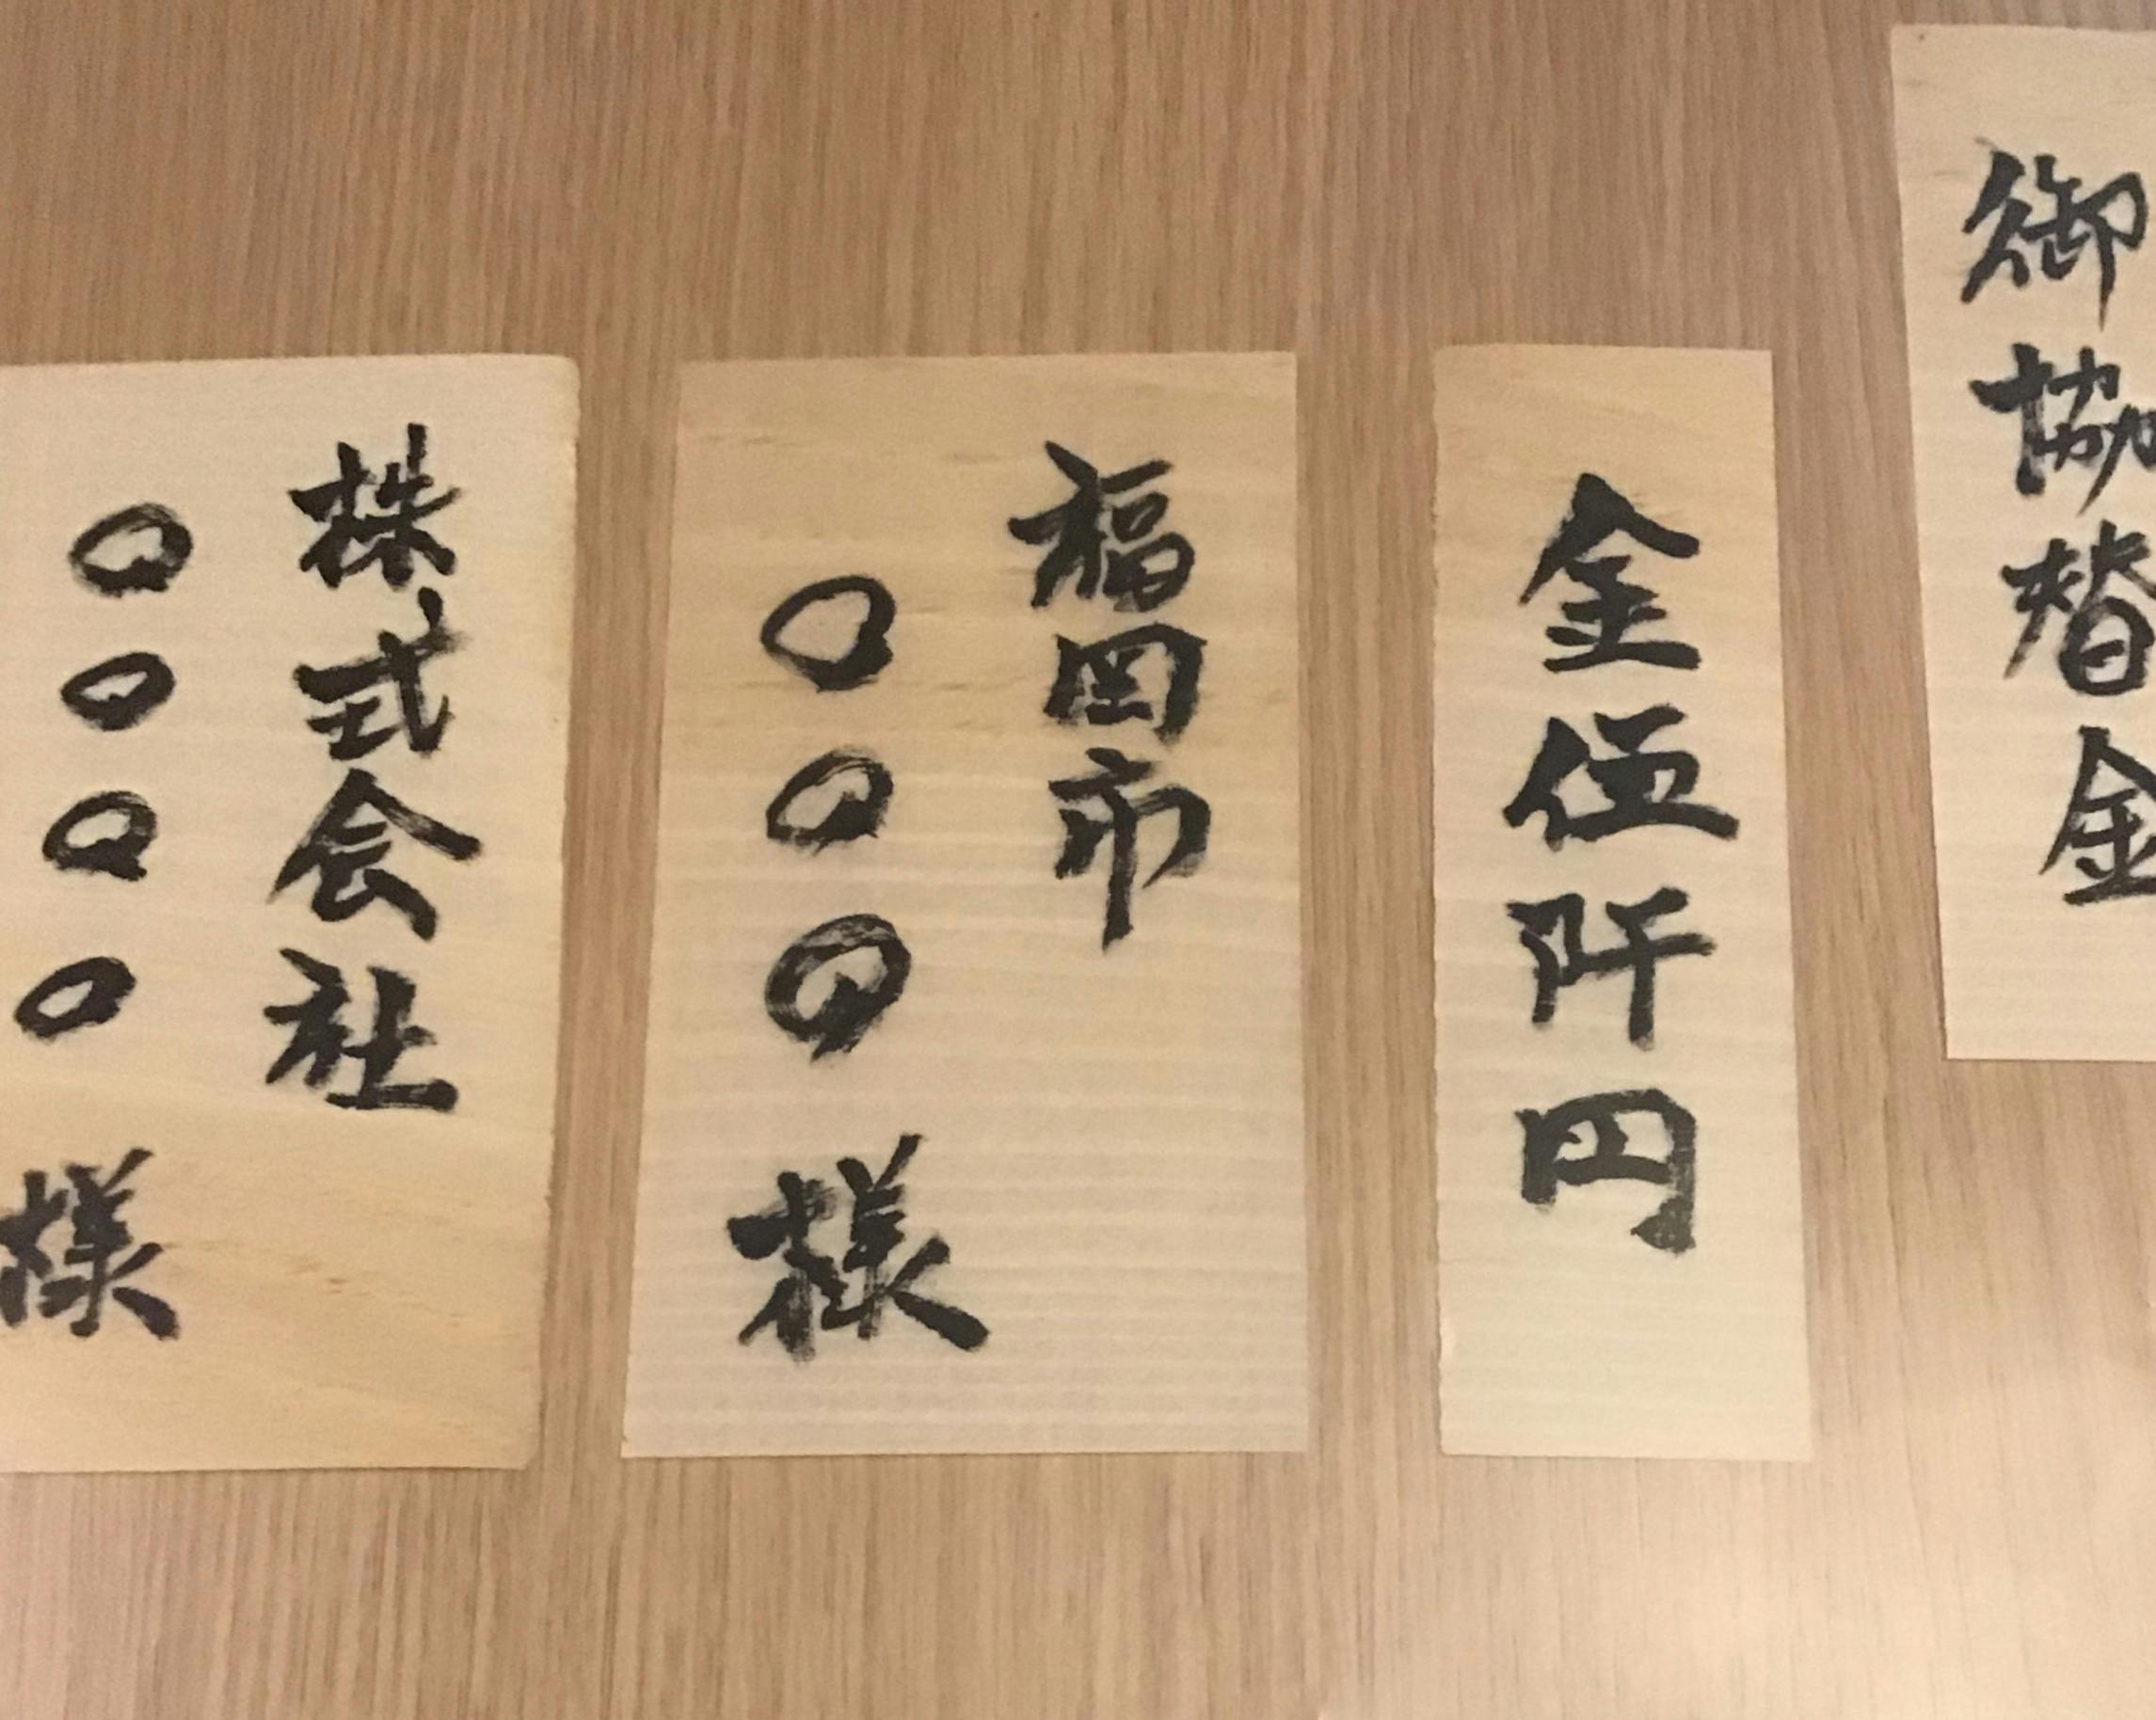 御協替金
金伍阡円
福岡市
〇〇〇様
株式会社
〇〇〇〇様